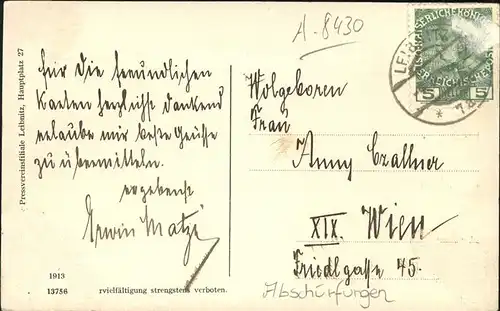 A-8430
Für die freundlichen
Karten herzlichst dankend
erlaube mir beste Grüsse
zu übermitteln.
ergebenst
Erwin Matzi
Pressvereinsfiliale Leibnitz, Hauptplatz 27
1913
13756 rvielfältigung strengstens verboten.
LEIB
5 5
Wolgeboren
Frau
Anny Czallner
XIX. Wien
Friedlgasse 45.
Abschürfungen